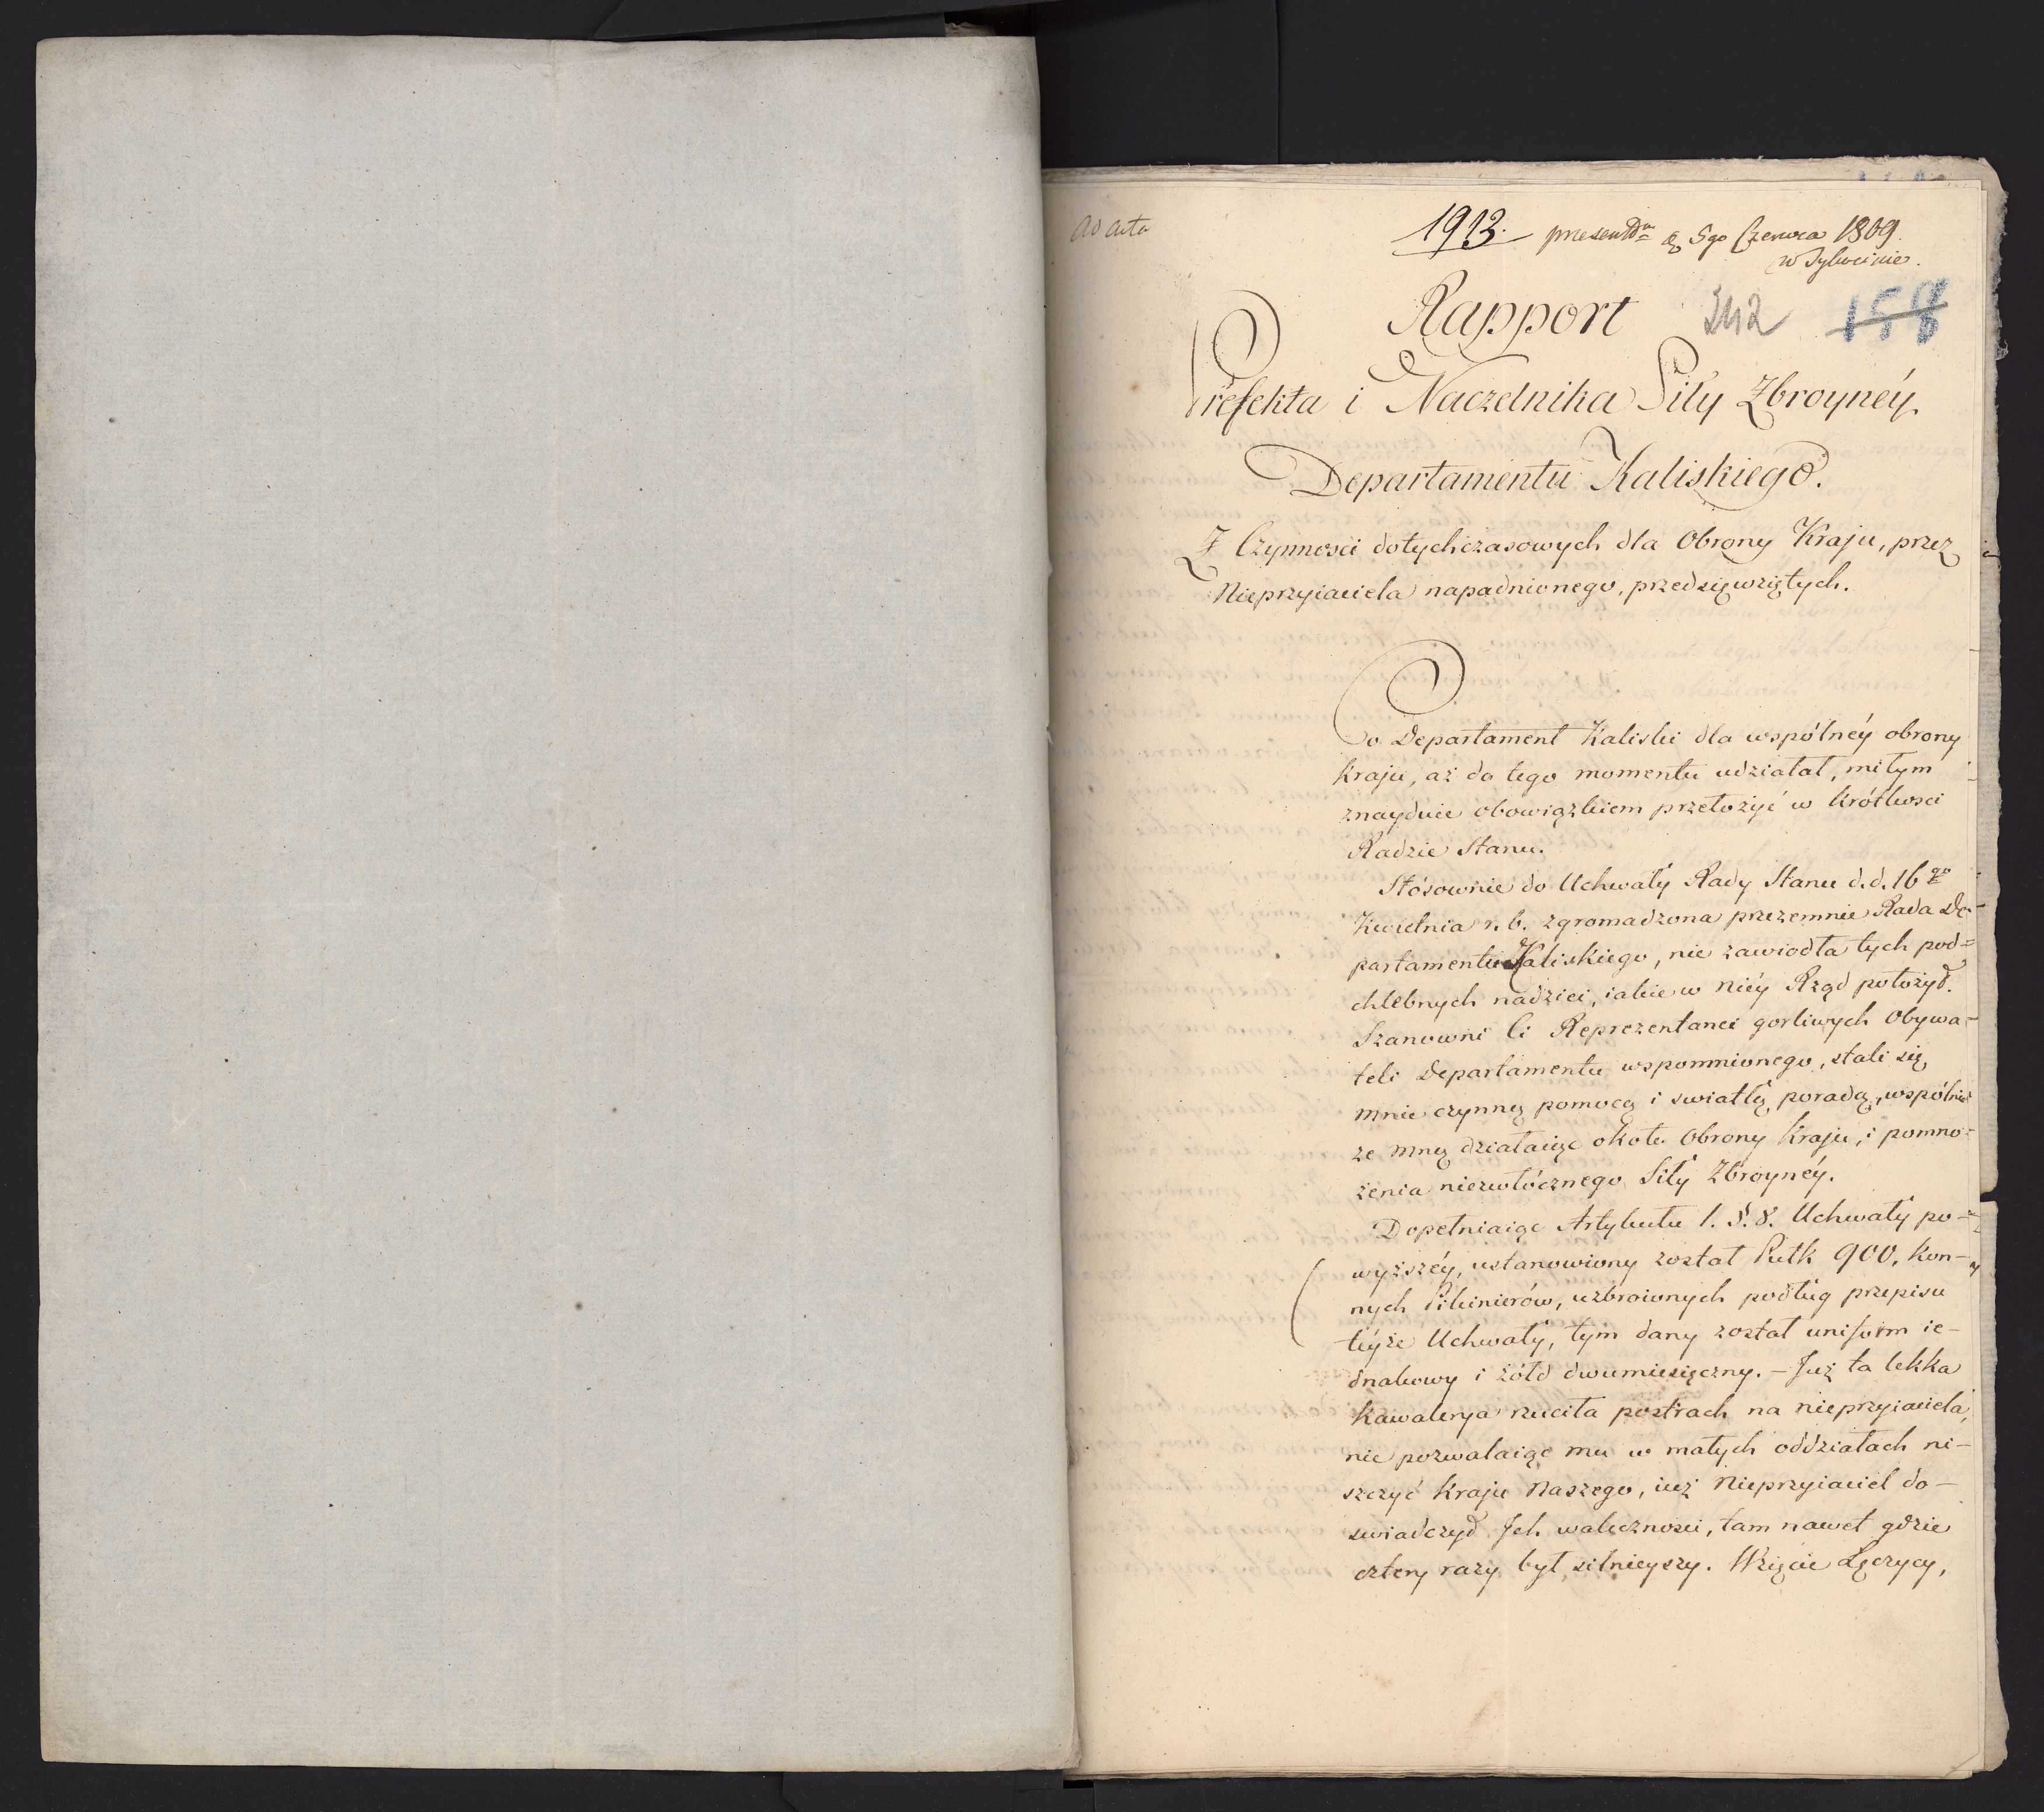 ad acta
1913. presentdm d. 5go Czerwca 1809.
w Tykocinie.
Rapport 242 158
Prefekta i Naczelnika Siły Zbroynéy
Departamentu Kaliskiego.
Z Czynnosci dotychczasowych dla Obrony Kraju, przez
Nieprzyiaciela napadnionego, przedsięwziętych.
Co Departament Kaliski dla wspólnéy obrony
kraju, aż do tego momentu udziałał, miłym
znayduie obowiązkiem przełożyć w krótkosci
Radzie Stanu.
Stósownie do Uchwały Rady Stanu d.d. 16go
Kwietnia r. b. zgromadzona przezemnie Rada De-
partamentu Kaliskiego, nie zawiodła tych pod=
chlebnych nadziei, iakie w niéy Rząd położył.
Szanowni Ci Reprezentanci gorliwych Obywa=
teli Departamentu wspomnionego, stali się
mnie czynną pomocą i swiatłą poradą, wspólnie
ze mną działaiąc około Obrony Kraju, i pomno=
żenia niezwłócznego Siły Zbroynéy.
Dopełniaiąc Artykułu 1. §. 8. Uchwały po-
wyższéy, ustanowiony został Pułk 900, kon-
nych Pikinierów, uzbroionych podług przepisu
téyże Uchwały, tym dany został uniform ie-
dnakowy i żółd dwumiesięczny. - Już ta lekka
kawalerya rzuciła postrach na nieprzyiaciela,
nie pozwalaiąc mu w małych oddziałach ni-
szczyć Kraju Naszego, iuż Nieprzyiaciel do-
swiadczył Ich waleczności, tam nawet gdzie
cztery razy był silnieyszy. Wzięcie Łęczycy,